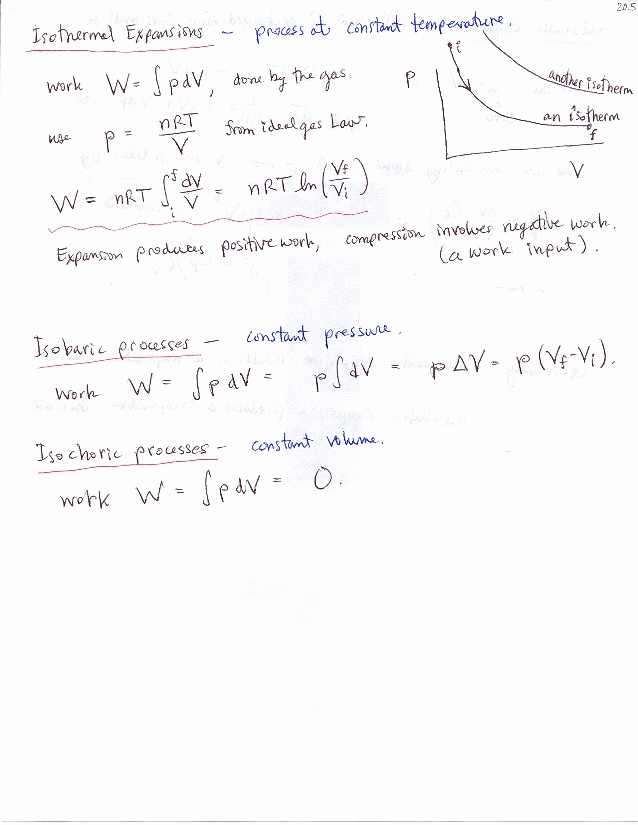 20.5
Isothermal Expansions – process at constant temperature.
work W = ∫ p dV, done by the gas.
use p = nRT/V from ideal gas Law.
W = nRT ∫_i^f dV/V = nRT ln(V_f/V_i)
P
i
another isotherm
an isotherm
f
V
Expansion produces positive work, compression involves negative work.
(a work input).
Isobaric processes – constant pressure.
work W = ∫ p dV = p ∫ dV = p ΔV = p (V_f – V_i).
Isochoric processes – constant volume.
work W = ∫ p dV = 0.